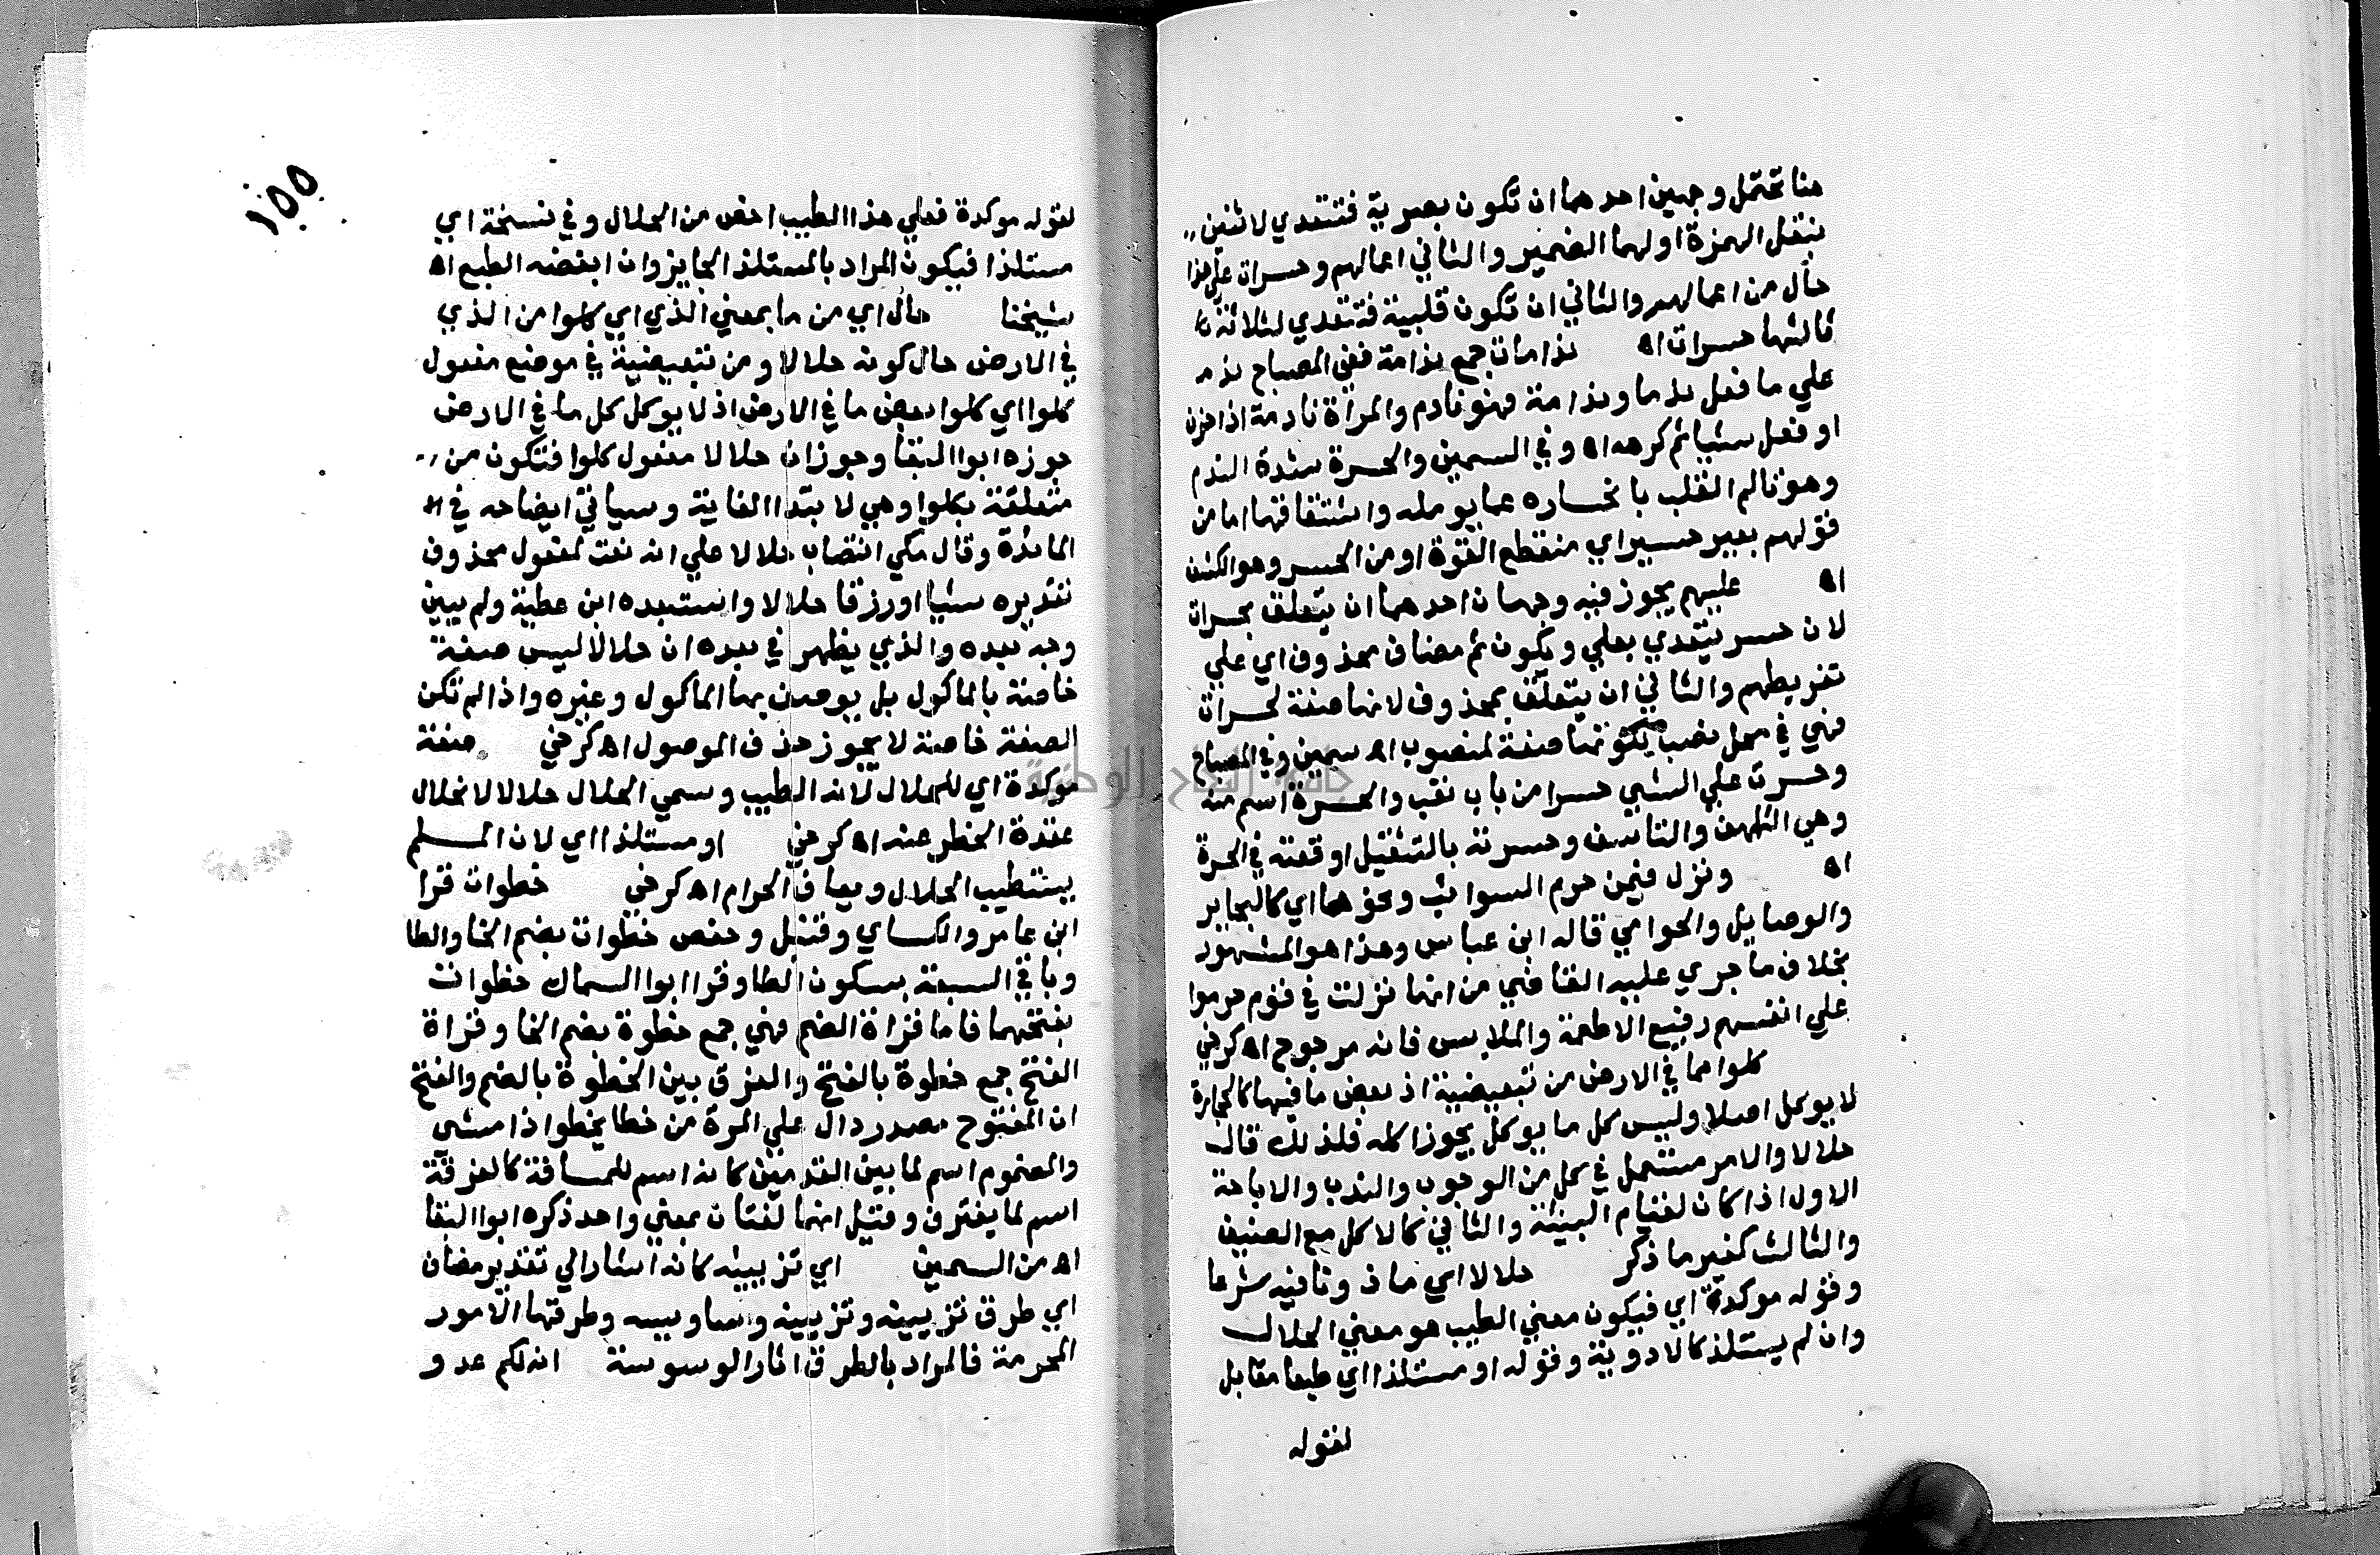 هنا تحتمل وجهين احدهما ان تكون بصرية فتتعدي لاثنين
بنقل الهمزة اولهما الضمير والثاني اعمالهم وحسرات علي هذا
حال من اعمالهم والثاني ان تكون قلبية فتتعدي لثلاثة
ثالثها حسرات اه ندامات جمع ندامة ففي المصباح ندم
علي ما فعل ندما وندامة فهو نادم والمرأة نادمة اذا حزن
او فعل شيئا ثم كرهه اه وفي السمين والحسرة شدة الندم
وهو تالم القلب بانحساره عما يومله واشتقاقها اما من
قولهم بعير حسير اي منقطع القوة او من الحسر وهو الكشف
اه عليهم يجوز فيه وجهان احدهما ان يتعلق بحسرات
لان حسر يتعدي بعلي ويكون ثم مضاف محذوف اي علي
تفريطهم والثاني ان يتعلق بمحذوف لانها صفة لحسرات
فهي في محل نصب لكونها صفة لمنصوب اه سمين وفي المصباح
وحسرت علي الشي حسرا من باب تعب والحسرة اسم منه
وهي التلهف والتاسف وحسرته بالتثقيل اوقعته في الحسرة
اه ونزل فيمن حرم السوائب ونحوهما اي كالبحاير
والوصايل والحوامي قاله ابن عباس وهذا هو المشهور
بخلاف ما جري عليه القاضي من انها نزلت في قوم حرموا
علي انفسهم رفيع الاطعمة والملابس فانه مرجوح اه كرخي
كلوا مما في الارض من تبعيضية اذ بعض ما فيها كالحجارة
لا يوكل اصلا وليس كل ما يوكل يجوز اكله فلذلك قال
حلالا والامر مستعمل في كل من الوجوب والندب والاباحة
الاول اذا كان لقيام البينة والثاني كالاكل مع الضيف
والثالث كغير ما ذكر حلالا اي ماذونا فيه شرعا
وقوله موكدة اي فيكون معني الطيب هو معني الحلال
وان لم يستلذ كالادوية وقوله او مستلذا اي طبعا مقابل
لقوله
١٥٥
لقوله موكدة فعلي هذا الطيب اخص من الحلال وفي نسخة اي
مستلذا فيكون المراد بالمستلذ الجايز وان ابغضه الطبع اه
شيخنا حال اي من ما بمعني الذي اي كلوا من الذي
في الارض حال كونه حلالا ومن تبعيضية في موضع مفعول
كلوا اي كلوا بعض ما في الارض اذ لا يوكل كل ما في الارض
جوزه ابوا البقا وجوز ان حلالا مفعول كلوا فتكون من
متعلقة بكلوا وهي لابتدا الغاية وسياتي ايضاحه في
المائدة وقال مكي انتصاب حلالا علي انه نعت لمفعول محذوف
تقديره شيا او رزقا حلالا واستبعده ابن عطية ولم يبين
وجه بعده والذي يظهر في بعده ان حلالا ليس صفة
خاصة بالماكول بل يوصف بها الماكول وغيره واذا لم تكن
الصفة خاصة لا يجوز حذف الموصول اه كرخي صفة
موكدة اي للحلال لانه الطيب وسمي الحلال حلالا لانحلال
عقدة الحظر عنه اه كرخي او مستلذا اي لان المسلم
يستطيب الحلال ويعاف الحرام اه كرخي خطوات قرا
ابن عامر والكساي وقنبل وحفص خطوات بضم الخا والطا
وباقي السبعة بسكون الطا وقرا ابوا السماك خطوات
بفتحهما فاما قراة الضم فهي جمع خطوة بضم الخا وقراة
الفتح جمع خطوة بالفتح والفرق بين الخطوة بالضم والفتح
ان المفتوح مصدر دال علي المرة من خطا يخطوا اذا مشي
والمضموم اسم لما بين القدمين كانه اسم للمسافة كالغرفة
اسم لما يغترف وقيل انهما لغتان بمعني واحد ذكره ابوا البقا
اه من السمين اي تزيينه كانه اشار الي تقدير مضاف
اي طرق تزيينه وتزيينه وساوسه وطرقها الامور
المحرمة فالمراد بالطرق اثار الوسوسة انه لكم عدو